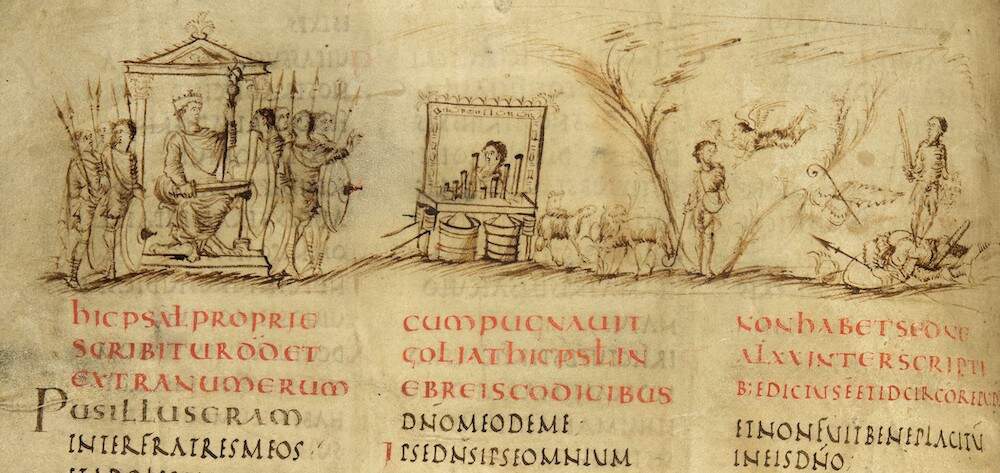 HICPSALPROPRIE
SCRIBITURDDET
EXTRANUMERUM
PUSILLUSERAM
INTERFRATRESMEOS
CUMPUGNAVIT
GOLIATHICPSLIN
EBREISCODICIBUS
DNOMEODEME
IPSEDNSIPSEOMNIUM
NONHABETSEDNE
ALXXINTERSCRIPTI
ETNONFUITBENEPLACITU
INEISDNO